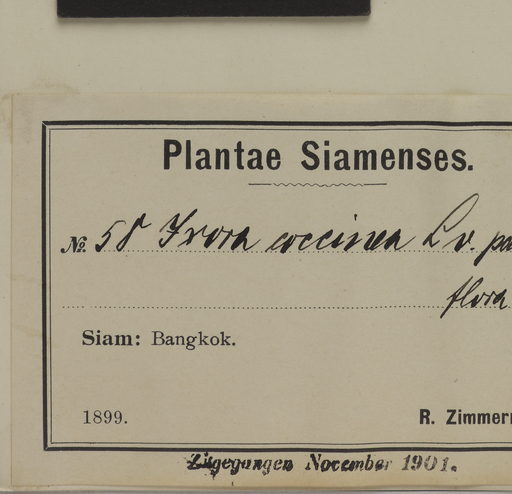 Plantae Siamenses.
No. 58 Ixora coccinea L v. pa
flora
Siam: Bangkok.
1899. R. Zimmer
Eingegangen November 1901.